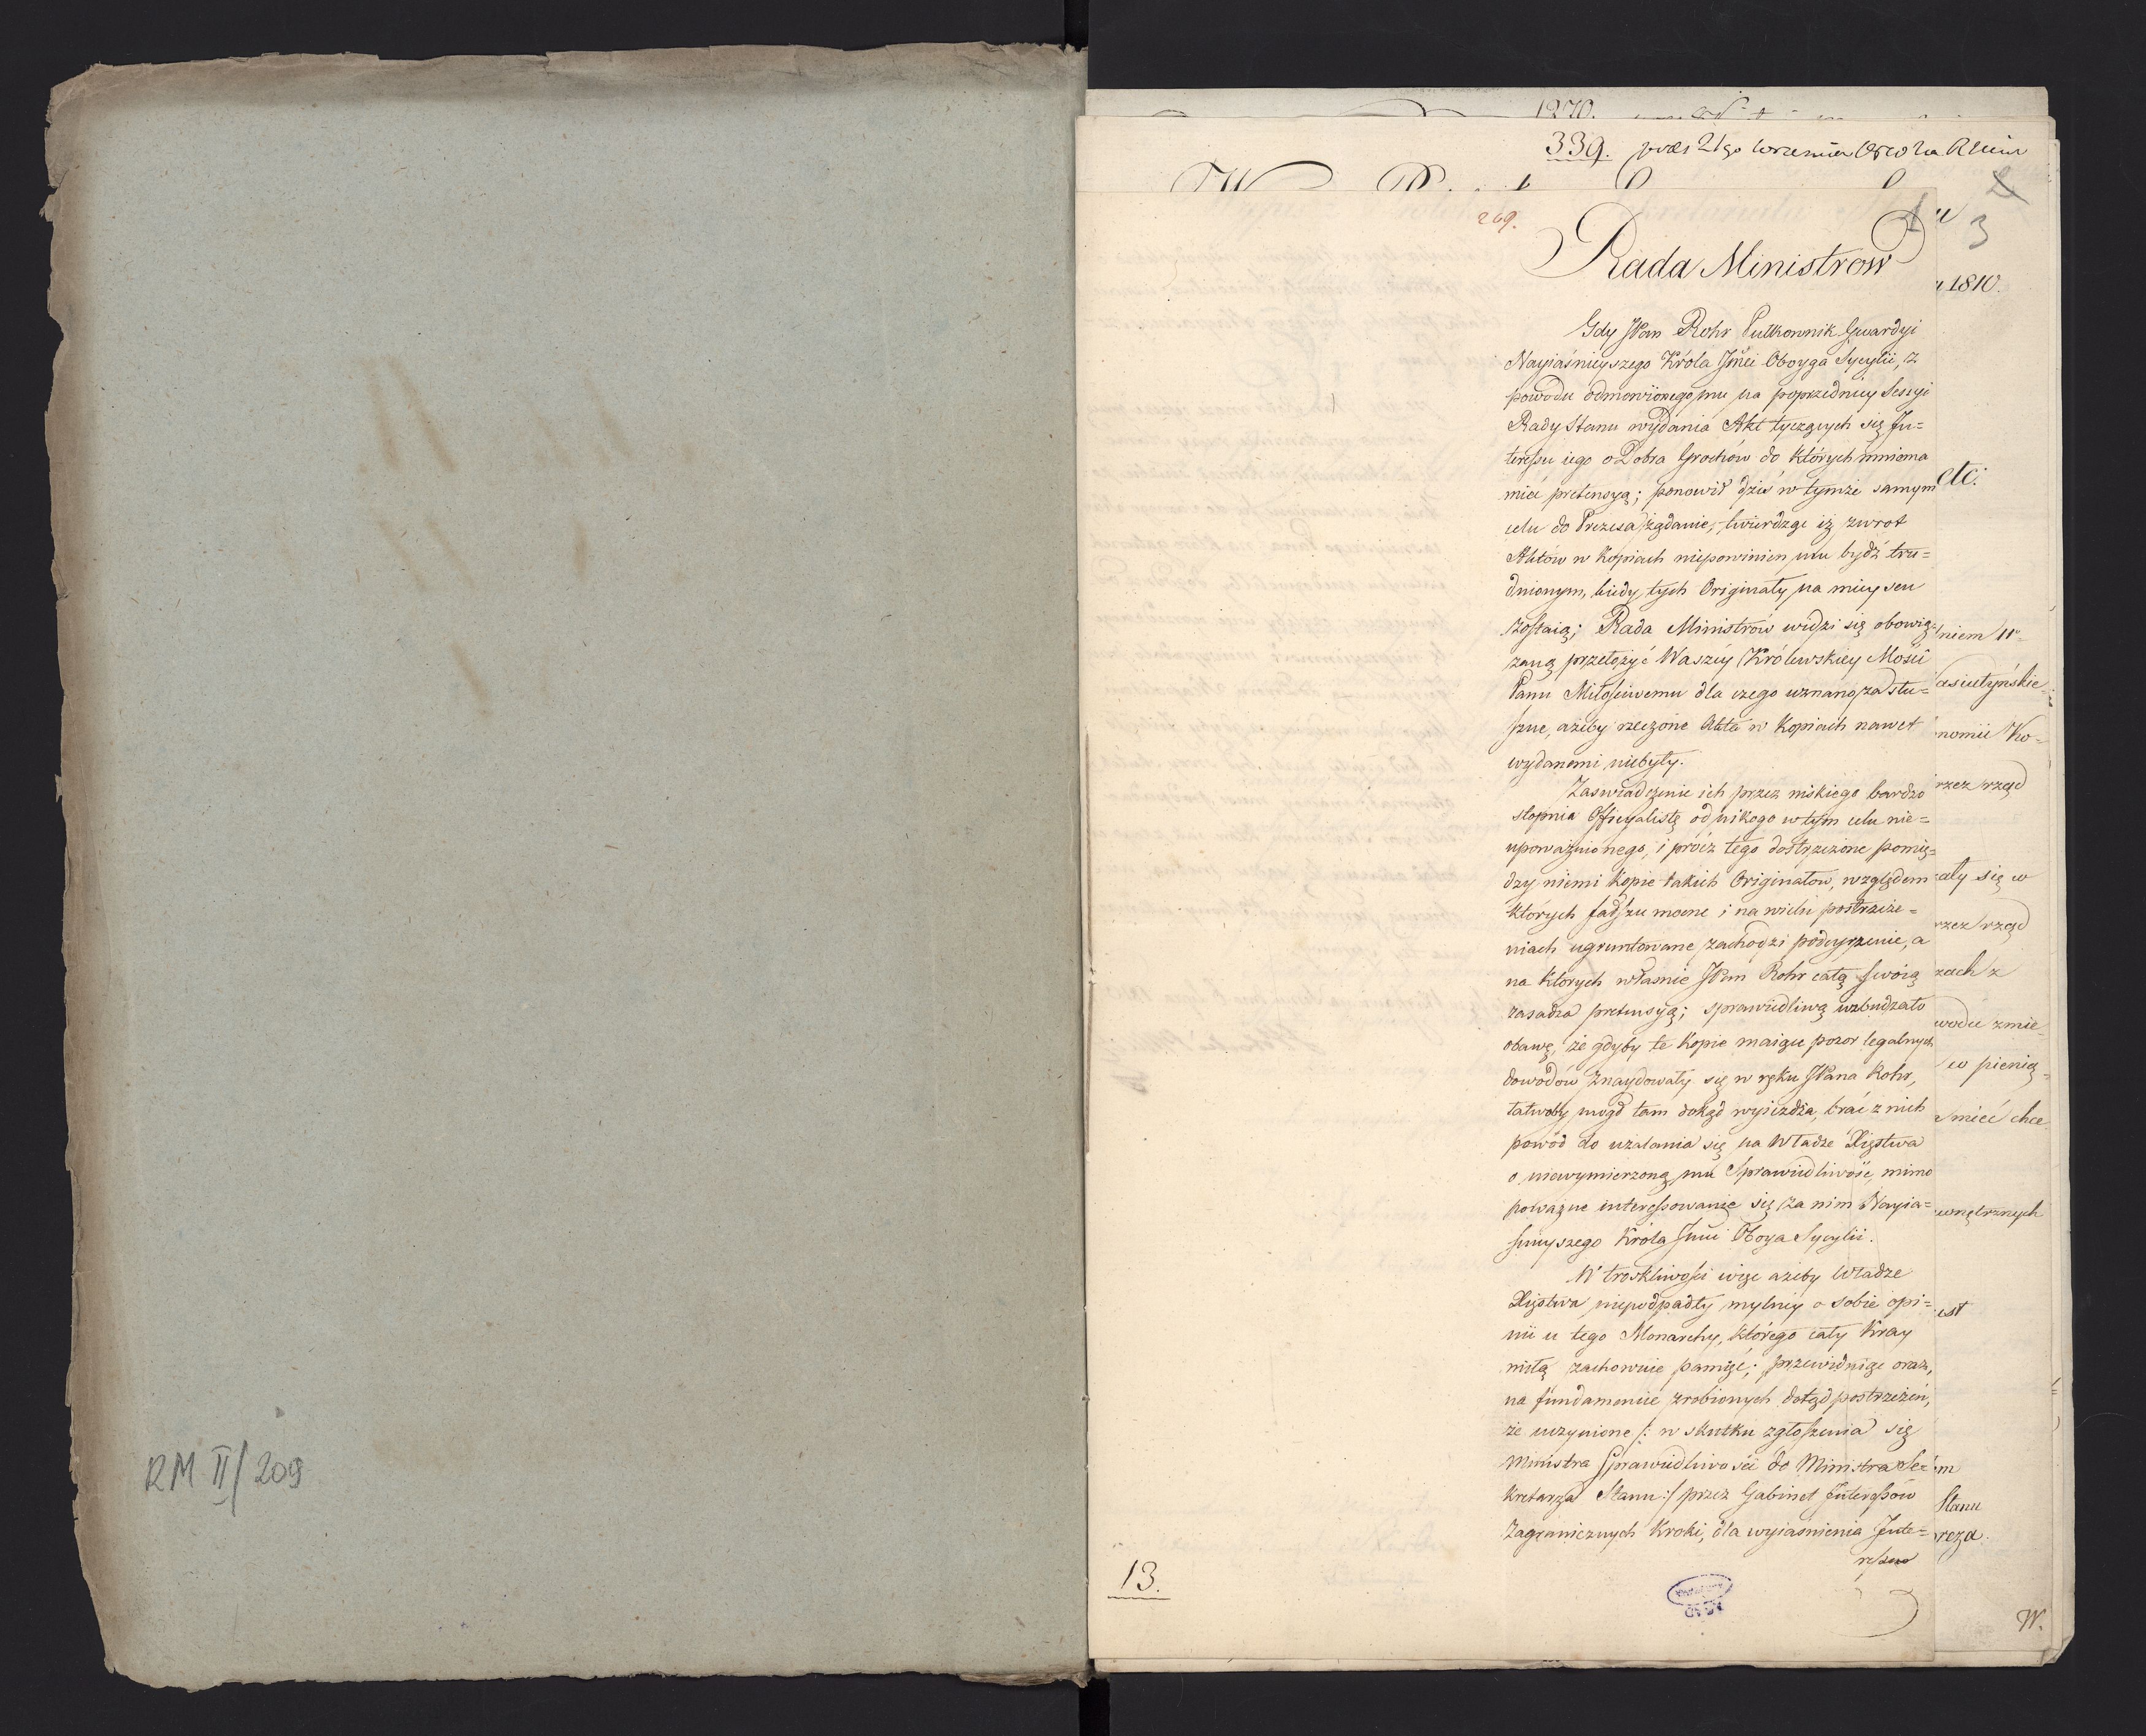 RM II/209
1270.
339. prds 21go września 1810 za
269.
1
2
3
Rada Ministrow
u 1810.
Gdy JPan Rohr Pułkownik Gwardyi
Nayiaśnieyszego Króla Jmci Oboyga Sycylii, z
powodu odmowionego mu na poprzedniey Sessyi
Rady Stanu wydania Akt tyczących się In=
teressu iego o Dobra Grochów do których mniema
mieć pretensyą; ponowił dziś w tymże samym
etc.
celu do Prezesa żądanie, twierdząc iż zwrot
Aktów w Kopiach niepowinien mu bydź tru=
dnionym, kiedy tych Originały na mieyscu
zostaią; Rada Ministrów widzi się obowią=
zaną przełożyć Waszey Królewskiey Mości
Panu Miłościwemu dla czego uznano za słu=
szne, ażeby rzeczone Akta w Kopiach nawet
wydanemi niebyły.
Zaswiadczenie ich przez niskiego bardzo
stopnia Officyalistę od nikogo w tym celu nie=
upoważnionego, i prócz tego dostrzeżone pomię=
dzy niemi kopie takich Originałow, względem
których fałszu mocne i na wielu postrzeże=
niach ugruntowane zachodzi podeyrzenie, a
na ktorych własnie JPan Rohr całą swoią
zasadza pretensyą; sprawiedliwą wzbudzało
obawę, że gdyby te kopie maiące pozor legalnych
dowodów znaydowały się w ręku JPana Rohr,
łatwoby mógł tam dokąd wyieżdża, brać z nich
powód do użalania się na Władze Xięstwa
o niewymierzoną mu Sprawiedliwość, mimo
poważne interessowanie się za nim Nayia=
snieyszego Króla Jmci Oboya Sycylii.
W troskliwości więc ażeby Władze
Xięstwa niepodpadły mylney o sobie opi=
nii u tego Monarchy, którego cały Kray
miłą zachowuie pamięć; przewiduiąc oraz,
na fundamencie zrobionych dotąd postrzeżeń,
że uczynione /: w skutku zgłoszenia się
Ministra Sprawiedliwości do Ministra Se=
kretarza Stanu :/ przez Gabinet Interessów
Zagranicznych Kroki, dla wyiaśnienia Inte=
ressu
niem
asiutyńskie
nomii Ko=
rzez rząd
ały się w
rzez rząd
zach z
wodu zmie=
w pienią=
mieć chce
wnętrznych
est
m
Stanu
reza.
13.
AGAD
W.